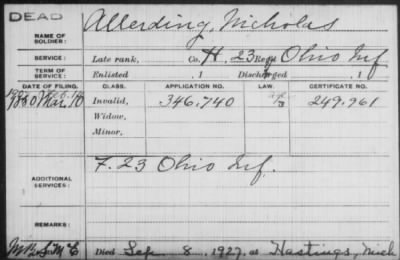 DEAD
NAME OF SOLDIER: Allerding, Nicholas
SERVICE: Late rank, Co. H, 23 Reg't Ohio Inf
TERM OF SERVICE: Enlisted , 1 Discharged , 1
DATE OF FILING. CLASS. APPLICATION NO. LAW. CERTIFICATE NO.
1880 Mar. 10 Invalid, 346,740 249,961
Widow,
Minor,
ADDITIONAL SERVICES: F. 23 Ohio Inf.
REMARKS:
Died Sep 8, 1927, at Hastings, Mich